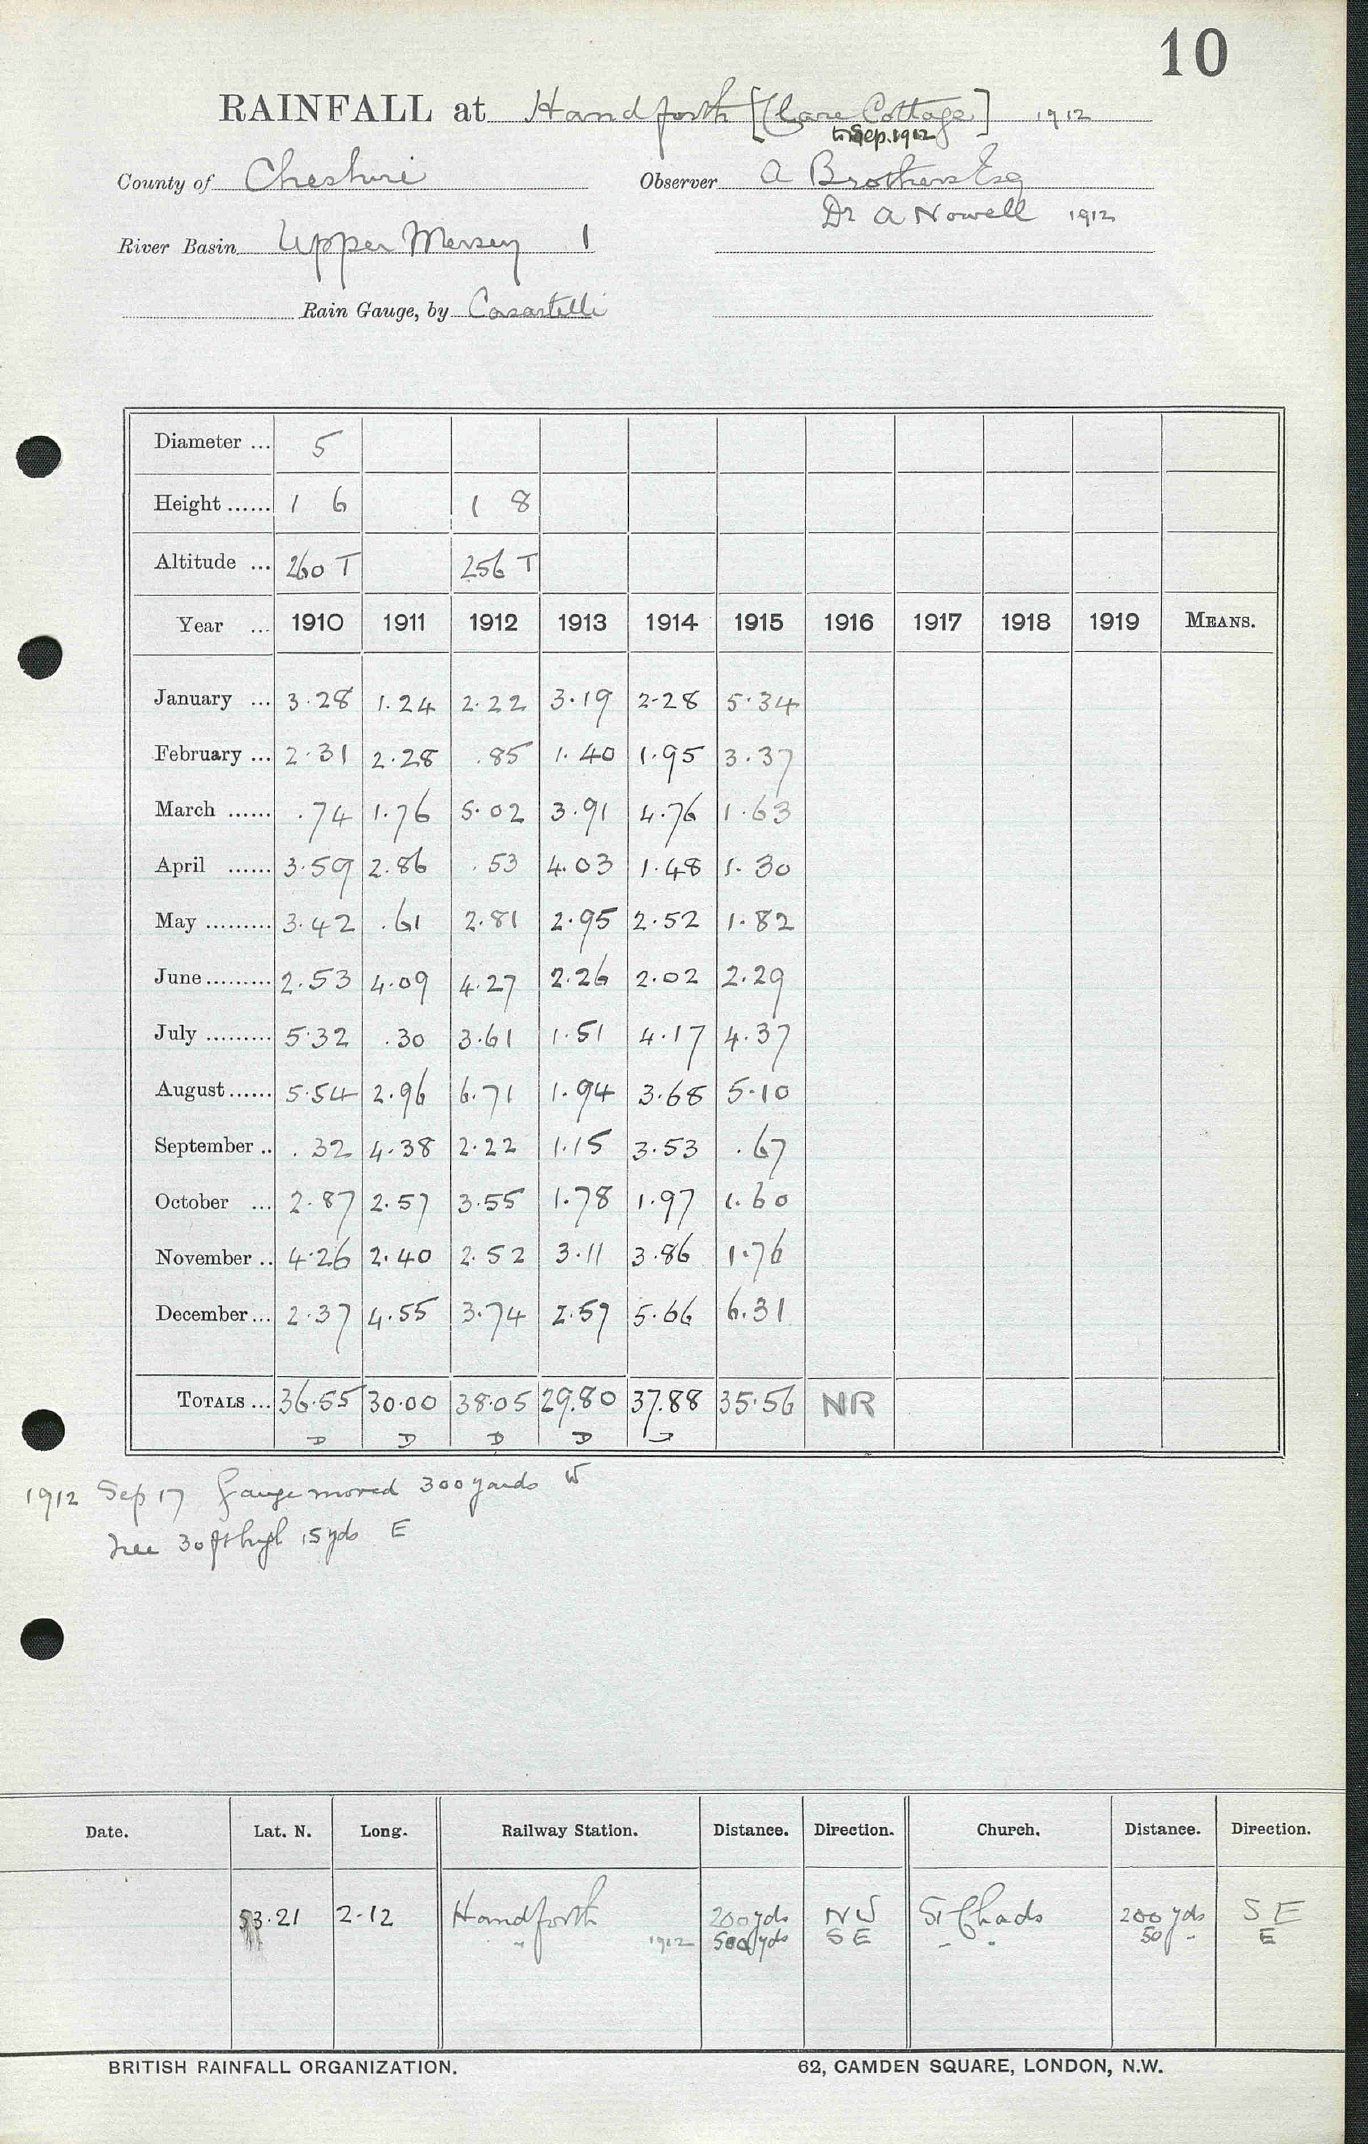 10
RAINFALL at Handforth [Clare Cottage] 1912
to Sep. 1912
County of Cheshire Observer A Brothers Esq
Dr A Nowell 1912
River Basin Upper Mersey 1
Rain Gauge, by Casartelli
Diameter ... 5
Height ...... 1 6 1 8
Altitude ... 260 T 256 T
Year ... 1910 1911 1912 1913 1914 1915 1916 1917 1918 1919 MEANS.
January ... 3.28 1.24 2.22 3.19 2.28 5.34
February ... 2.31 2.28 .85 1.40 1.95 3.37
March ...... .74 1.76 5.02 3.91 4.76 1.63
April ...... 3.59 2.86 .53 4.03 1.48 1.30
May ......... 3.42 .61 2.81 2.95 2.52 1.82
June ......... 2.53 4.09 4.27 2.26 2.02 2.29
July ......... 5.32 .30 3.61 1.51 4.17 4.37
August ...... 5.54 2.96 6.71 1.94 3.68 5.10
September .. .32 4.38 2.22 1.15 3.53 .67
October ... 2.87 2.57 3.55 1.78 1.97 1.60
November .. 4.26 2.40 2.52 3.11 3.86 1.76
December ... 2.37 4.55 3.74 2.57 5.66 6.31
TOTALS ... 36.55 30.00 38.05 29.80 37.88 35.56 NR
D D D D D
1912 Sep 17 Gauge moved 300 yards W
Tree 30 ft high 15 yds E
Date. Lat. N. Long. Railway Station. Distance. Direction. Church. Distance. Direction.
53.21 2.12 Handforth 200 yds NW St Chads 200 yds SE
" 1912 500 yds SE " " 50 " E
BRITISH RAINFALL ORGANIZATION. 62, CAMDEN SQUARE, LONDON, N.W.